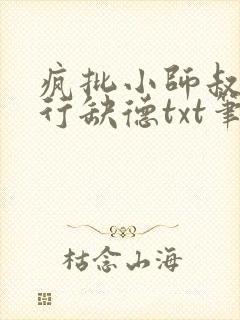 疯批小師叔
行缺德txt筆
枯念山海